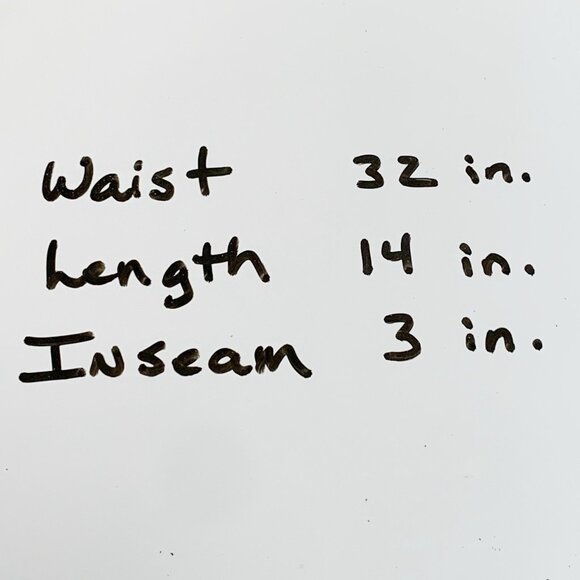 Waist 32 in.
Length 14 in.
Inseam 3 in.